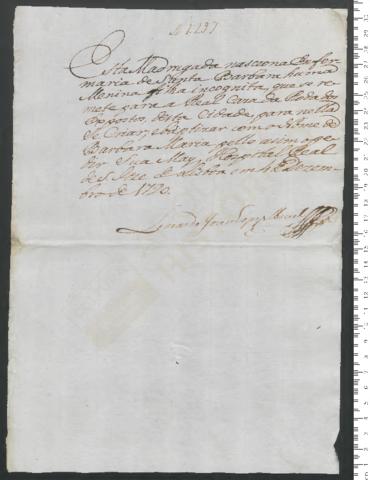 N 1237
Esta Madrugada nasceu na Enfer
maria de Santa Barbara huma
Menina filha incognita, que se re
mete para a Real Caza da Roda dos
Expostos, desta Cidade, para nella
se Criar, e baptizar com o Nome de
Barbara Maria, pello asim o pe
dir Sua May, Hospital Real
de S. Jozé de Lisboa em 4 de Dezem
bro de 1790.